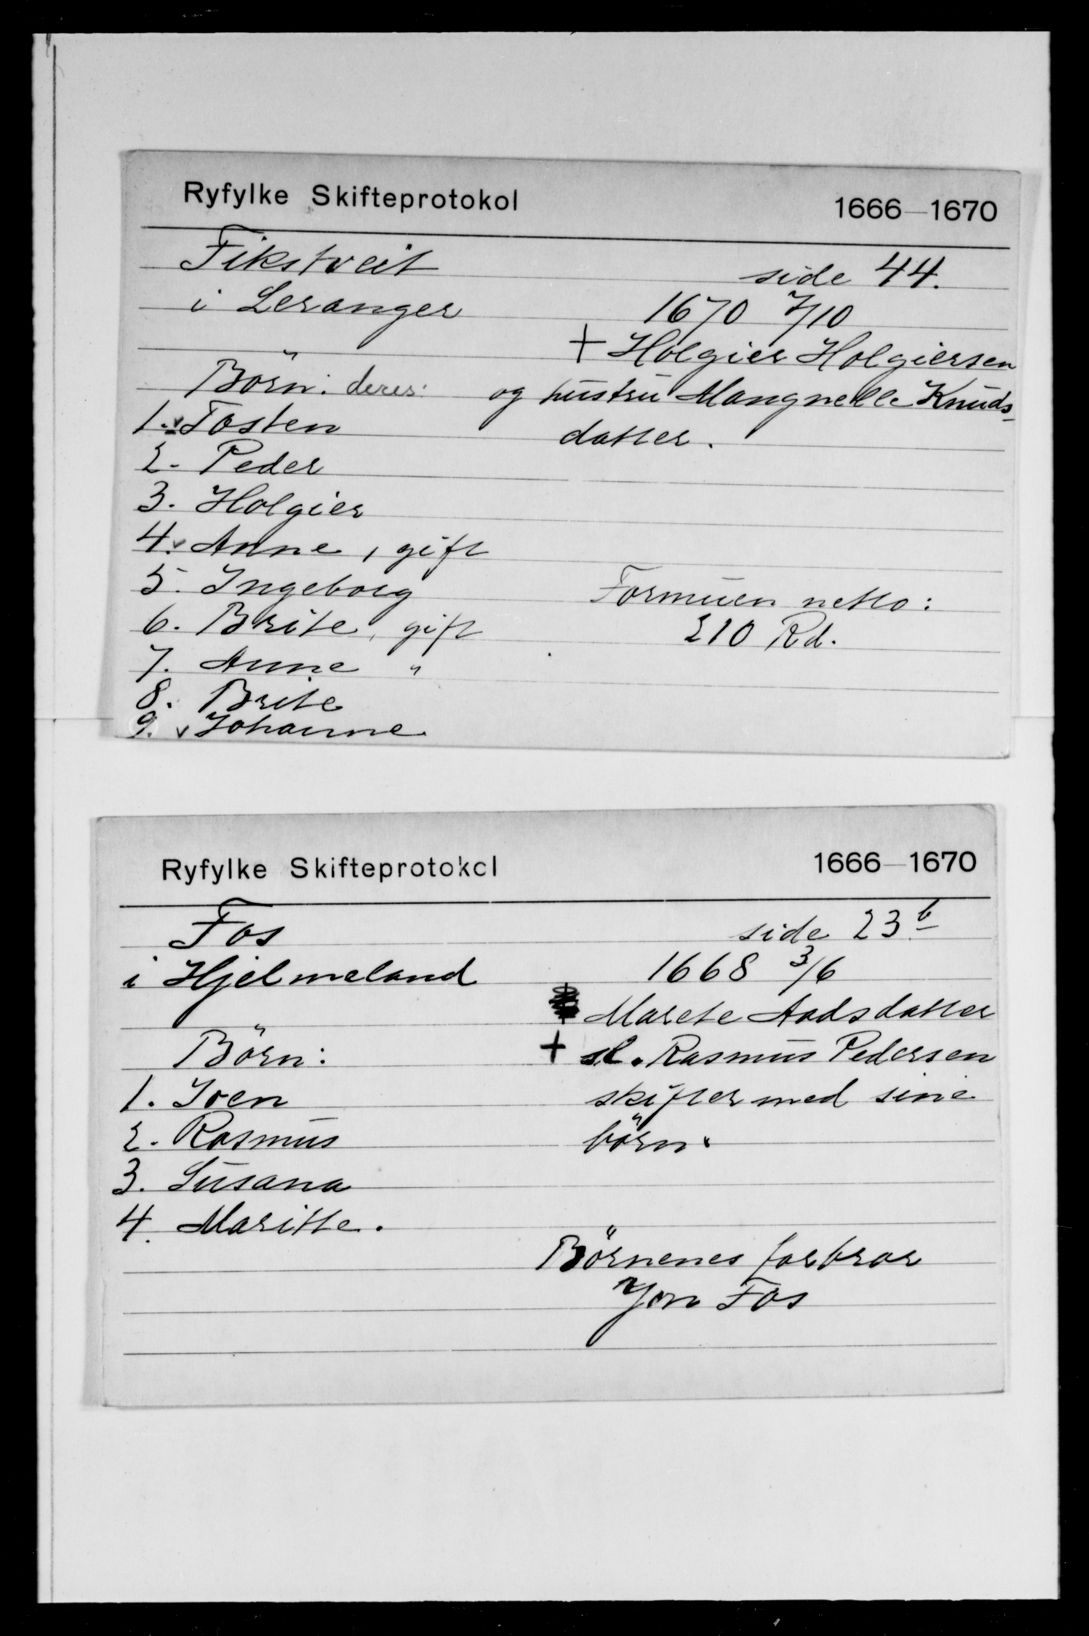 Ryfylke Skifteprotokol 1666-1670
Fikstveit side 44.
i Leranger 1670 7/10
+ Holgier Holgiersen
Börn: deres: og hustru Mangnelle Knuds-
1. v Tosten datter.
2. Peder
3. Holgier
4. v Anne, gift
5. Ingeborg Formuen netto:
6. Brite, gift 210 Rd.
7. Anne "
8. Brite
9. v Johanne
Ryfylke Skifteprotokol 1666-1670
Fos side 23 b
i Hjelmeland 1668 3/6
Marete Aadsdatter
Börn: + sl. Rasmus Pedersen
1. Iven skifter med sine
2. Rasmus börn.
3. Susana
4. Maritte.
Börnenes farbror
Jon Fos